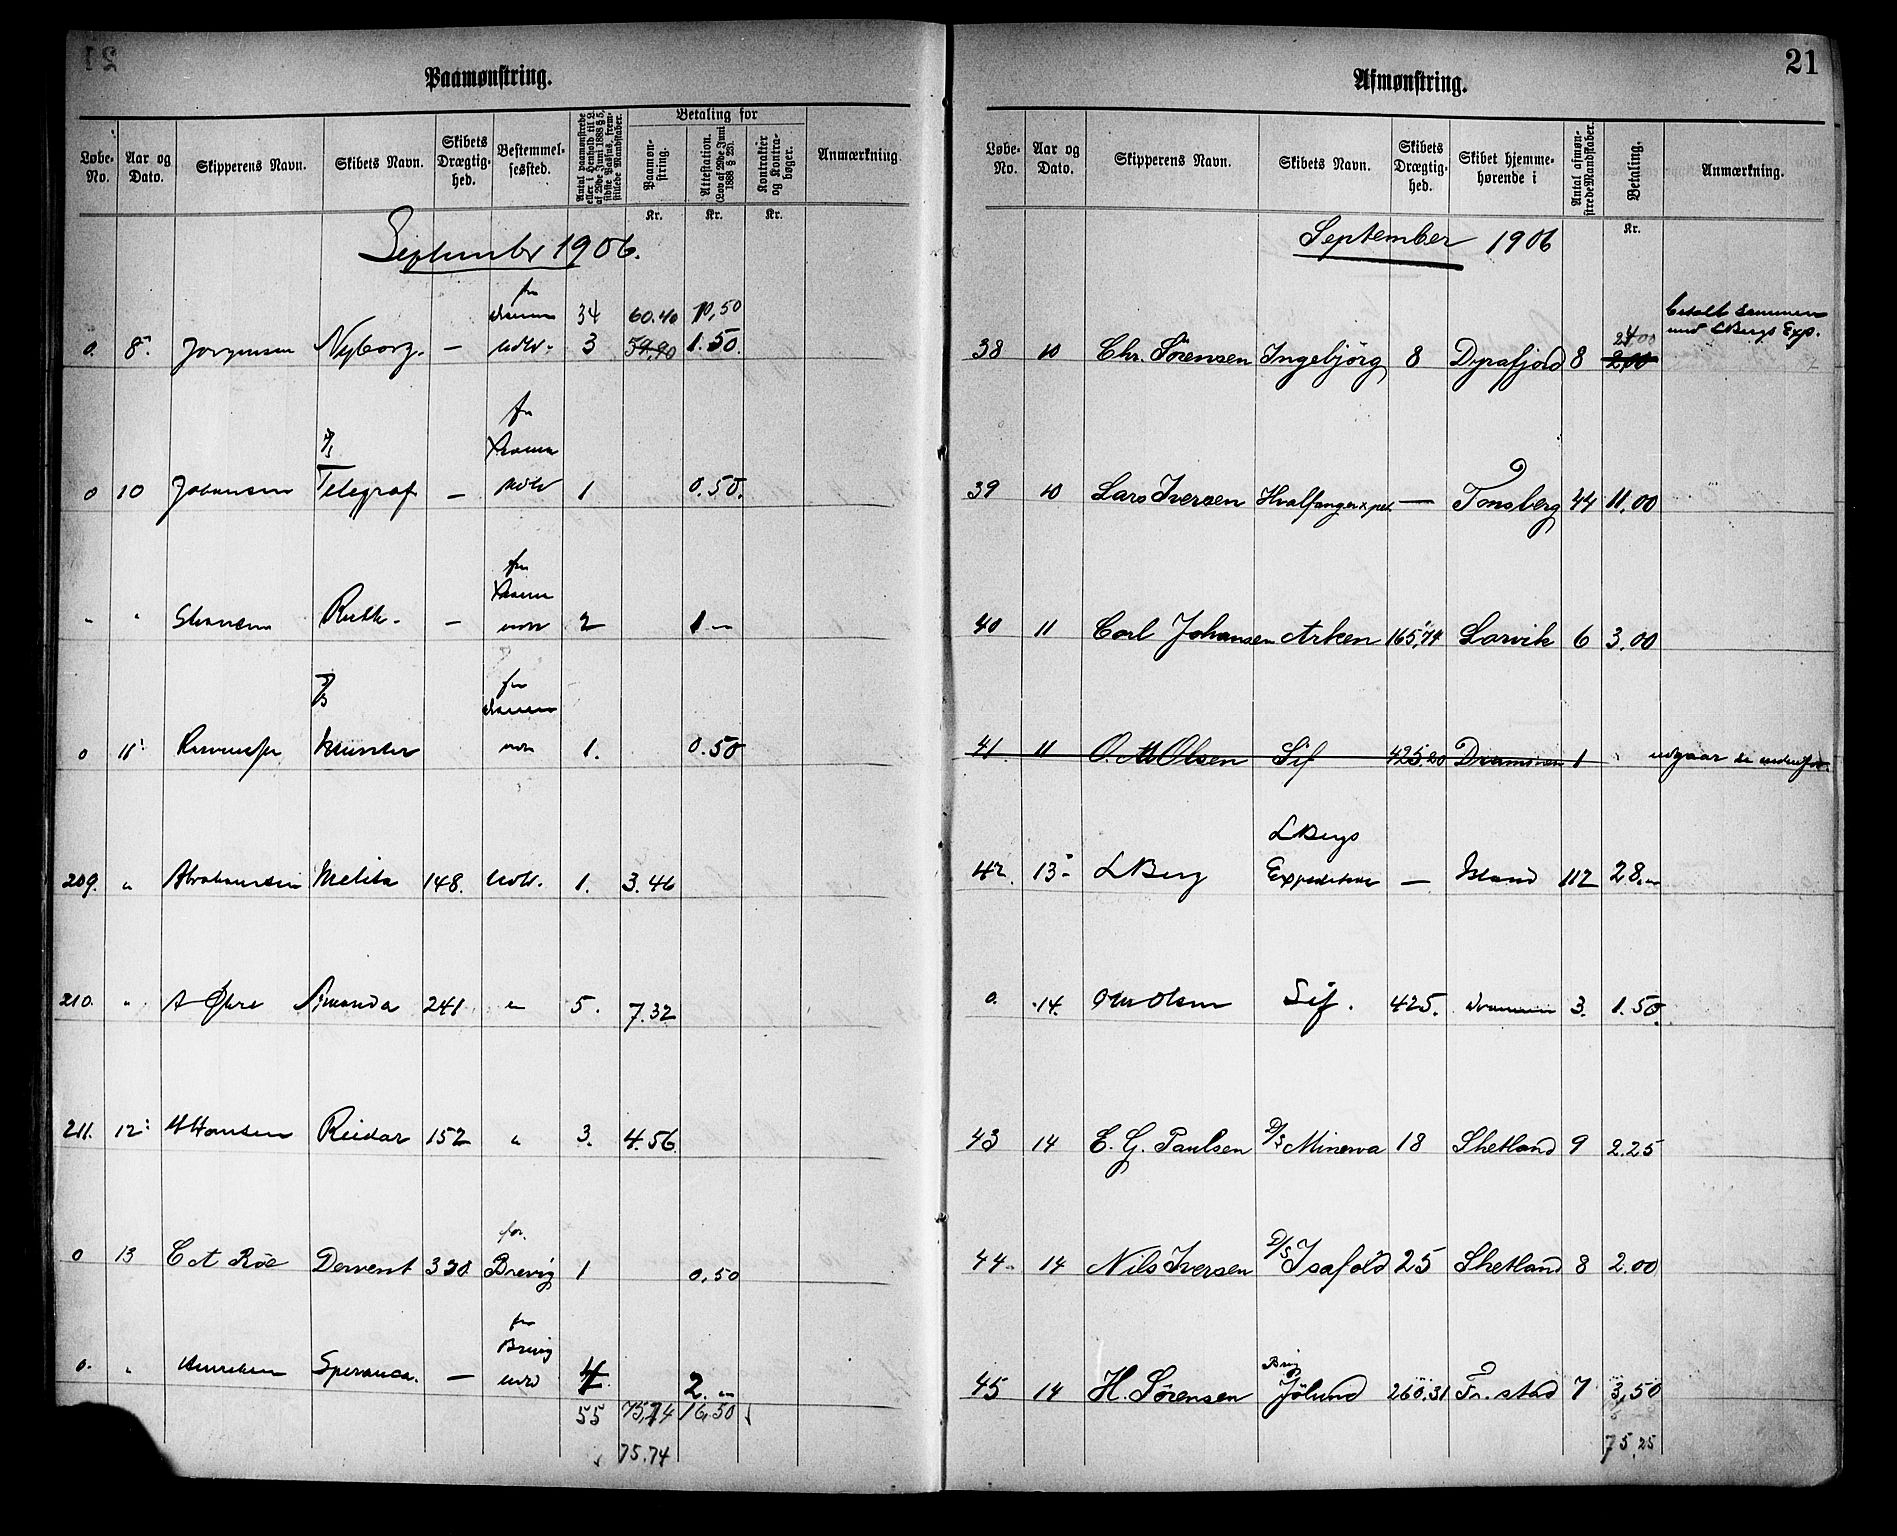 21
Paamønstring.
Løbe-No.
Aar og Dato.
Skipperens Navn.
Skibets Navn.
Skibets Drægtig-hed.
Bestemmel-sessted.
Antal paamønstrede eller i Henhold til L. af 29de Juni 1888 § 5, sidste Passus, frem-stillede Mandskaber.
Betaling for
Paamøn-string.
Attestation. (Lov af 29de Juni 1888 § 20).
Kontrakter og Kontra-bøger.
Anmærkning
Kr. Kr. Kr.
September 1906.
34 60.40 10,50
0. 8. Jörgensen Nyborg. — Udld. 3 59,90 1.50.
fra
0 10 Johansen Telegraf — 1 0.50.
fra
" " Ruth. — 2 1 —
fra
0 11 1. 0.50
209. " Abrahamsen Melita 148. Udld. 1. 3.46
210. " Amanda 241 " 5. 7.32
211. 12 H Hansen Reidar 152 " 3. 4.56
for
0 13 C A Röe Dervent 330 Brevig 1 0,50
fra
Brevig
0. " Speranca. — 4 2. "
55 75,74 16,50
75.74
21
Afmønstring.
Løbe-No.
Aar og Dato.
Skipperens Navn.
Skibets Navn.
Skibets Drægtig-hed.
Skibet hjemme-hørende i
Antal afmøn-strede Mandskaber.
Betaling.
Anmærkning.
Kr.
September 1906
betalt sammen
med L Bergs Exp.
24 00
38 10 Chr. Sörensen Ingebjörg 8 Dyrafjord 8 2,00
39 10 Lars Iversen Hvalfangerexped. — Tönsberg 44 11,00
40 11 Carl Johansen Arken 165,74 Larvik 6 3.00
41 11 O. M Olsen Sif 425.20 Drammen 1 udgaar
L Bergs
42. 13 L Berg Expedition — Island 112 28.
0. 14. O M Olsen Sif. 425. Drammen 3. 1.50.
43 14 E. G. Paulsen D/S Minerva 18 Shetland 9 2.25
44. 14 Nils Iversen D/S Isafold 25 Shetland 8 2.00
Brig
45 14 H. Sörensen Jölund 260.31 Fr. stad 7 3,50
75,25